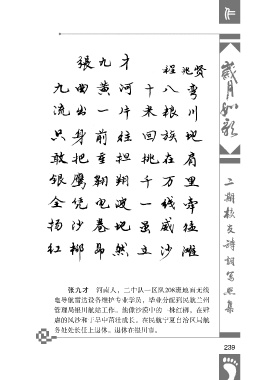 張九才
程兆贤
九曲黄河十八弯
流出一片米粮川
只身前往回族地
敢把重担挑在肩
银鹰翱翔千万里
全凭电波一线牵
扬沙卷地虽威猛
红柳昂然立沙滩
张九才 河南人，二十队一区队208班地面无线
电导航雷达设备维护专业学员，毕业分配到民航兰州
管理局银川航站工作。他像沙漠中的一株红柳，在肆
虐的风沙和干旱中茁壮成长。在民航宁夏自治区局航
务处处长任上退休。退休在银川市。
歲月如歌
二期校友诗词写照集
239